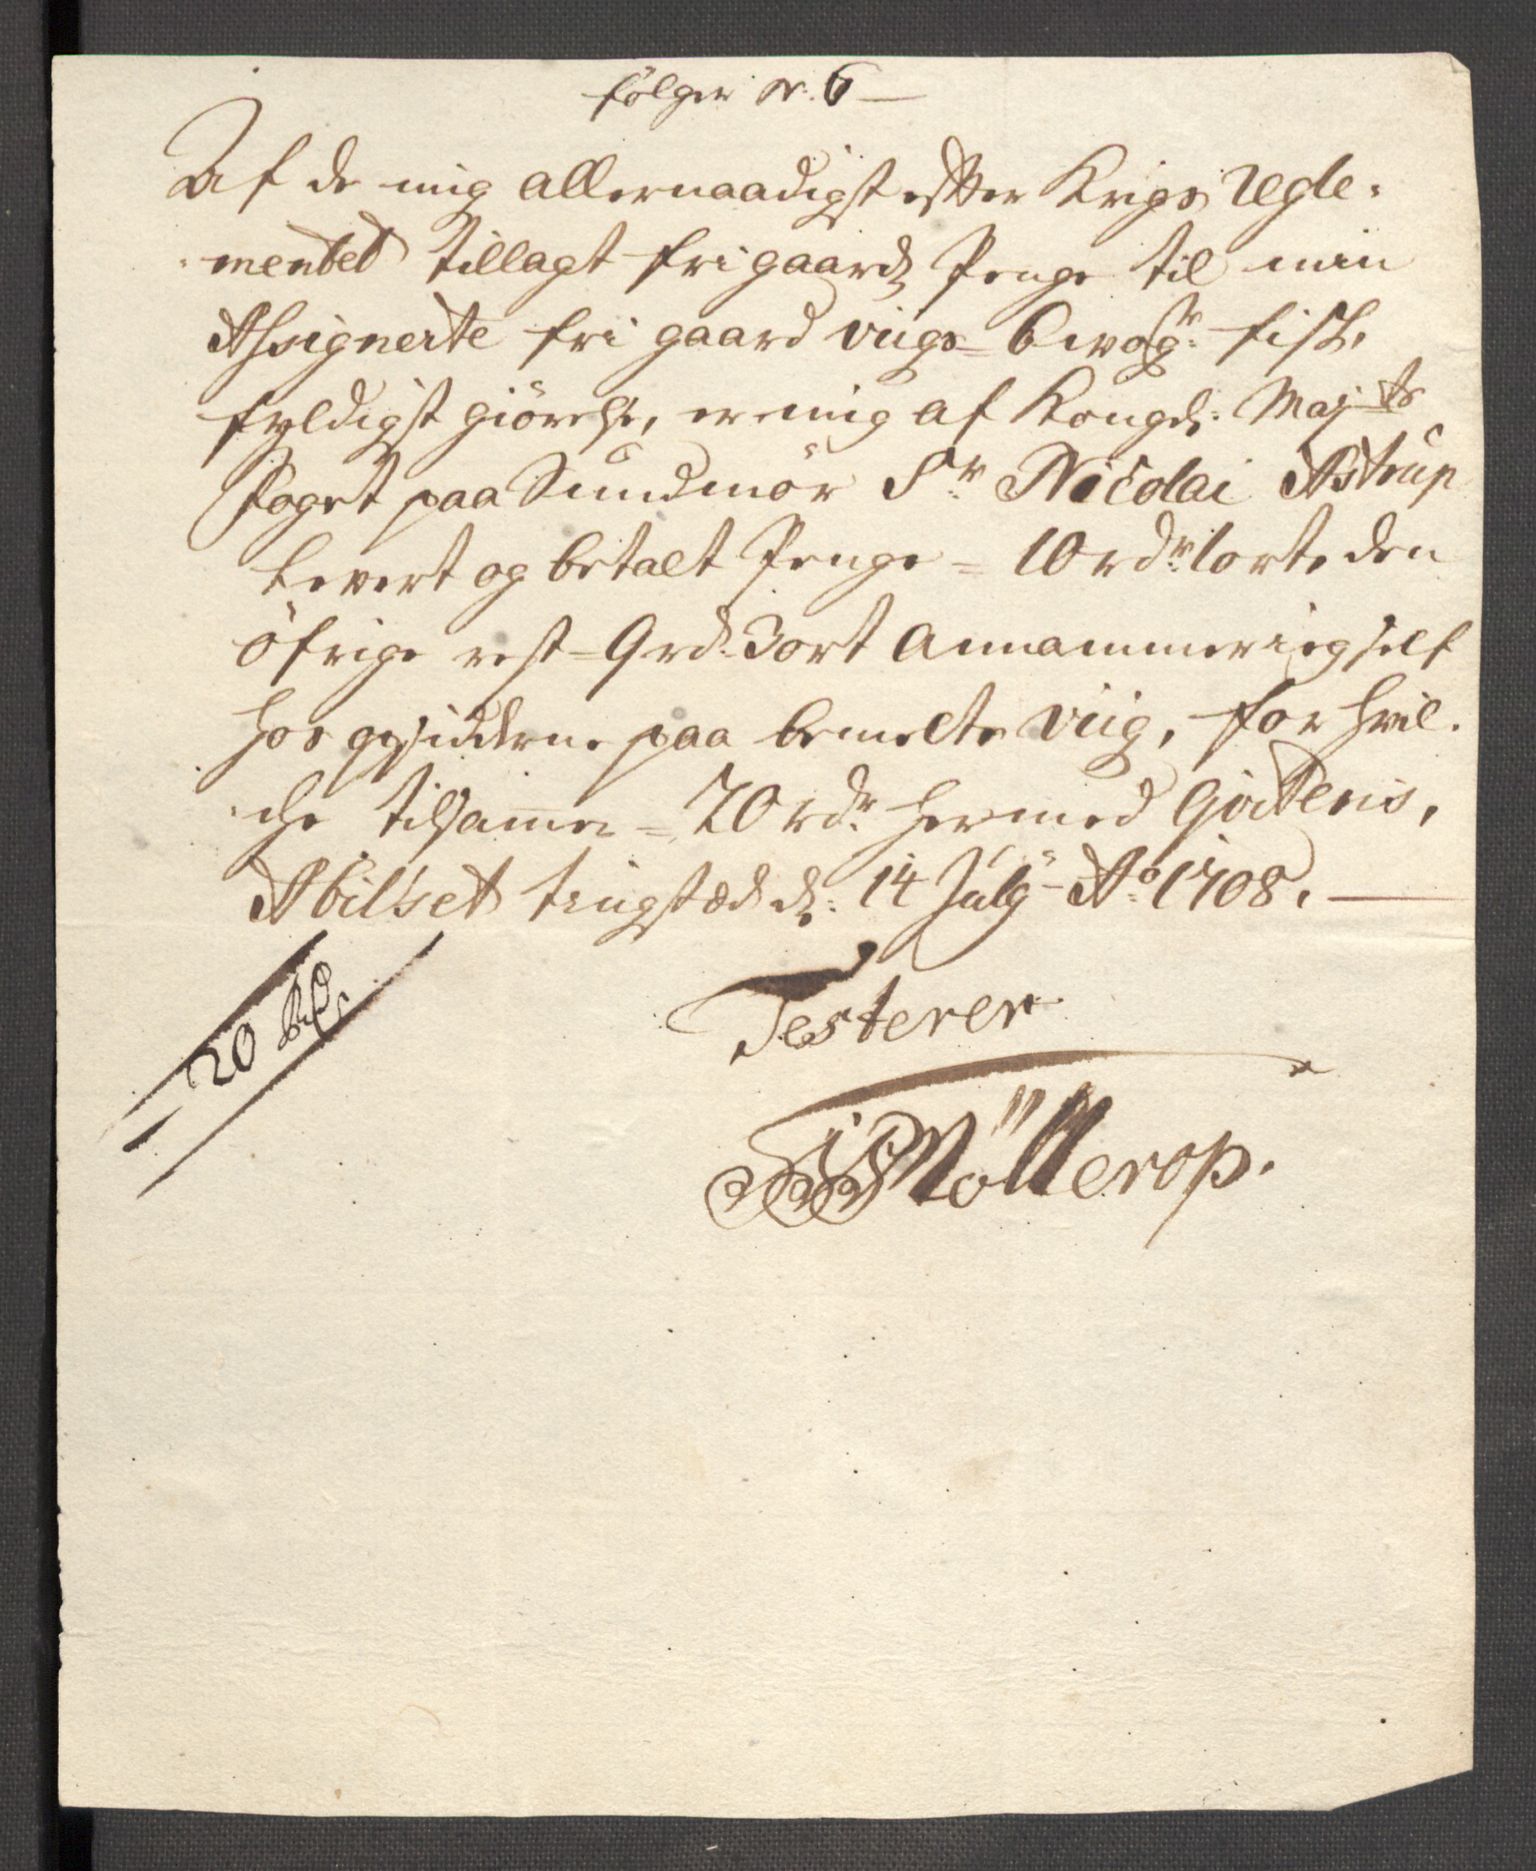 følger N: 6 —
Af de mig allernaadigst efter Krigs Regle-
mentet tillagt frigaards Penge til min
Assignerte fri gaard viigs = 6 wogr: fisks
fyldigst giørelse, er mig af Kongl: Maj:ts
foget paa Sundmör Sr. Nicolai Astrup
levert og betalt Penge = 10 rdr. 1 ort, den
öfrige rest = 9 rd. 3 ort Annammer ieg self
hos opsidderne paa bemelte viig, for hvil-
che tilsamen = 20 rdr. hermed qvitteris,
Abilset tingstæd d: 14 July Ao. 1708. —
20 rdr.
Testerer
Möllerop.